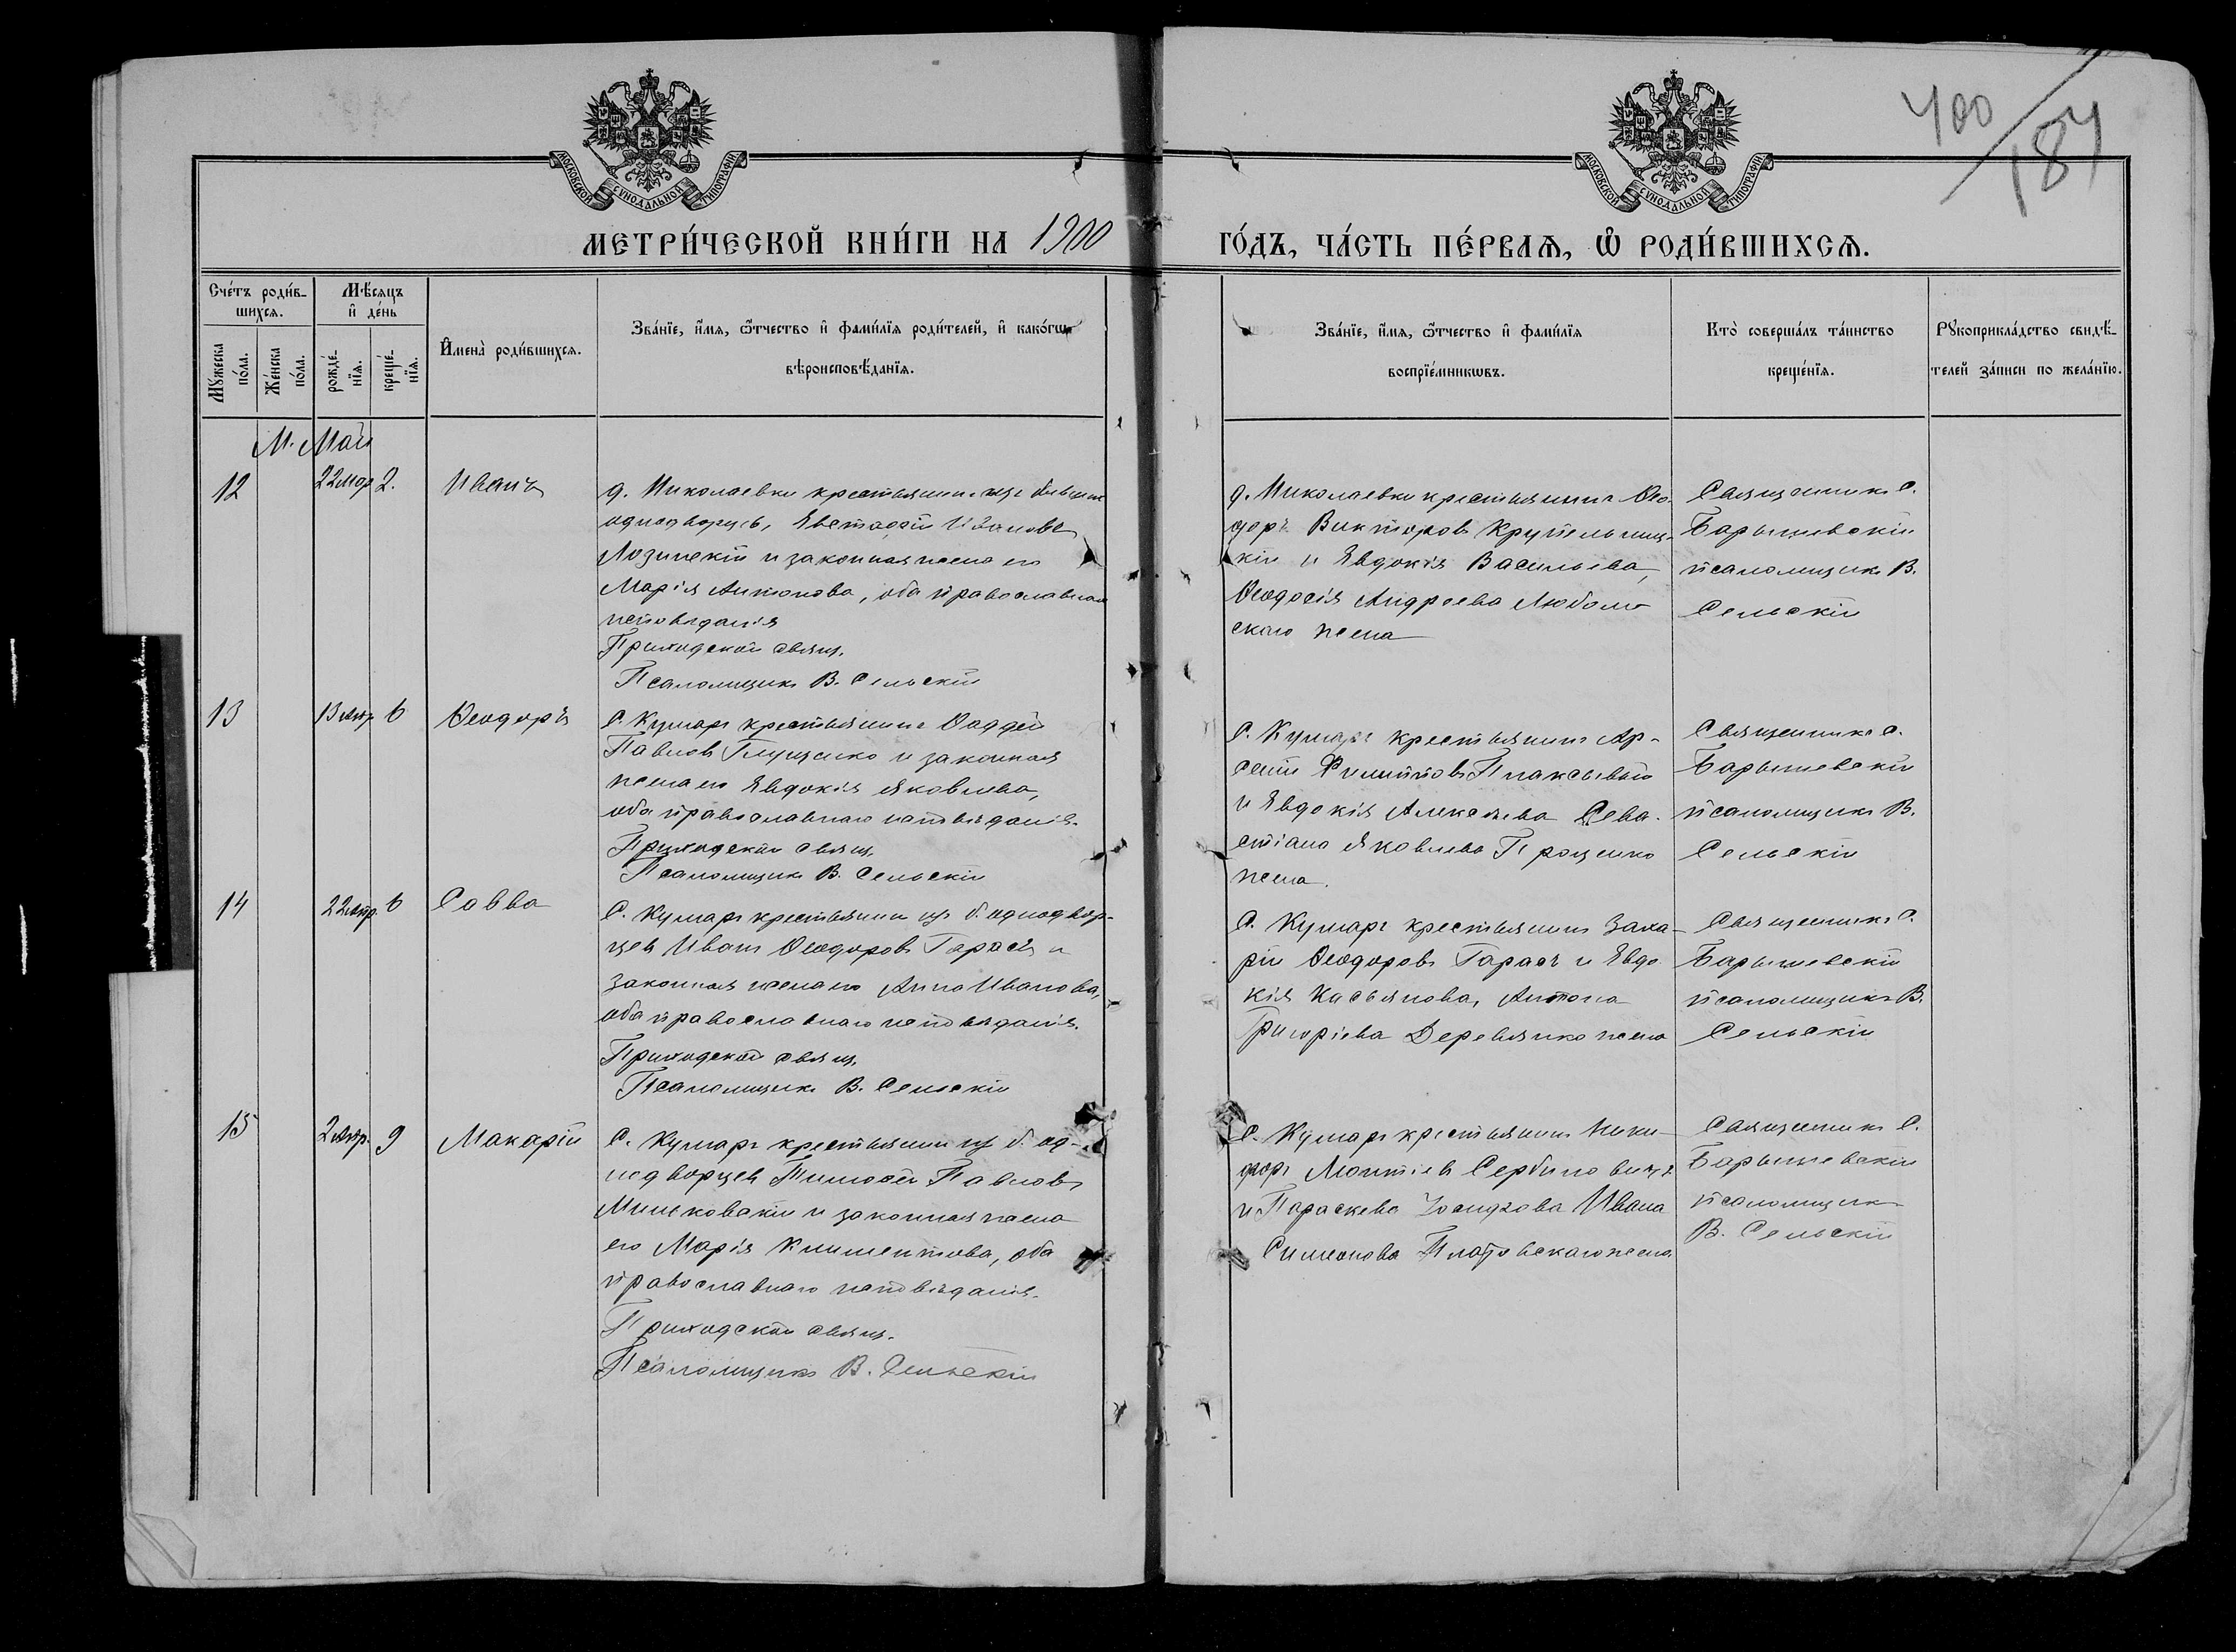 400
187
МОСКОВСКОЙ СѴНОДАЛЬНОЙ ТИПОГРАФІИ
МОСКОВСКОЙ СѴНОДАЛЬНОЙ ТИПОГРАФІИ
МЕТРИ́ЧЕСКОЙ КНИ́ГИ НА 1900
ГО́ДЪ, ЧА́СТЬ ПЕ́РВАѦ, Ѡ҆ РОДИ́ВШИХСѦ.
Сче́тъ роди́в-
шихсѧ.
Мꙋжеска по́ла.
Же́нска по́ла.
Мѣ́сѧцъ
и҆ де́нь
рожде́-
нїѧ.
креще́-
нїѧ.
И҆мена̀ роди́вшихсѧ.
Зва́нїе, и҆́мѧ, ѻ҆́тчество и҆ фами́лїѧ роди́телей, и҆ како́гѡ
вѣроисповѣ́данїѧ.
Зва́нїе, и҆́мѧ, ѻ҆́тчество и҆ фами́лїѧ
воспрїе́мникѡвъ.
Кто̀ соверша́лъ та́инство
креще́нїѧ.
Рꙋкоприкла́дство свидѣ́-
телей за́писи по жела́нїю.
М. Май
12 22 Мар. 2. Иванъ
д. Николаевки крестьянинъ изъ бывших
однодворцевъ, Евстафій Ивановъ
Лозинскій и законная жена его
Марія Антонова, оба православнаго
исповѣданія
Приходской свящ.
Псаломщикъ В. Сельскій
д. Николаевки крестьянинъ Ѳео-
доръ Викторовъ Крупельниц-
кій и Евдокія Васильева,
Ѳеодосія Андреева
скаго жена
Священникъ С.
Барышевскій
псаломщикъ В.
Сельскій
13 13 Апр. 6 Ѳеодоръ
С. Кумаръ крестьянинъ Ѳаддей
Павловъ Глущенко и законная
жена его Евдокія Яковлева,
оба православнаго исповѣданія.
Приходской свящ.
Псаломщикъ В. Сельскій
С. Кумаръ крестьянинъ Ар-
сеній Филипповъ Плаксывый
и Евдокія Алексѣева Сева-
стіана Яковлева Проценко
жена.
Священникъ С.
Барышевскій
псаломщикъ В.
Сельскій
14 22 Апр. 6 Савва
С. Кумаръ крестьянинъ изъ б. однодвор-
цевъ Иванъ Ѳеодоровъ Гарасъ и
законная жена его Анна Иванова,
оба православнаго исповѣданія.
Приходской свящ.
Псаломщикъ В. Сельскій
С. Кумаръ крестьянинъ Заха-
рій Ѳеодоровъ Гарасъ и Евдо-
кія Касьянова, Антона
Григоріева Деревянко жена
Священникъ С.
Барышевскій
псаломщикъ В.
Сельскій
15 2 Апр. 9 Макарій
С. Кумаръ крестьянинъ изъ б. од-
нодворцевъ Тимофей Павловъ
Миньковскій и законная жена
его Марія Климентова, оба
православнаго исповѣданія.
Приходской свящ.
Псаломщикъ В. Сельскій
С. Кумаръ крестьянинъ Ники-
форъ Сербиновичъ
и Параскева Іосифова Ивана
Симеонова жена.
Священникъ С.
Барышевскій
псаломщикъ
В. Сельскій